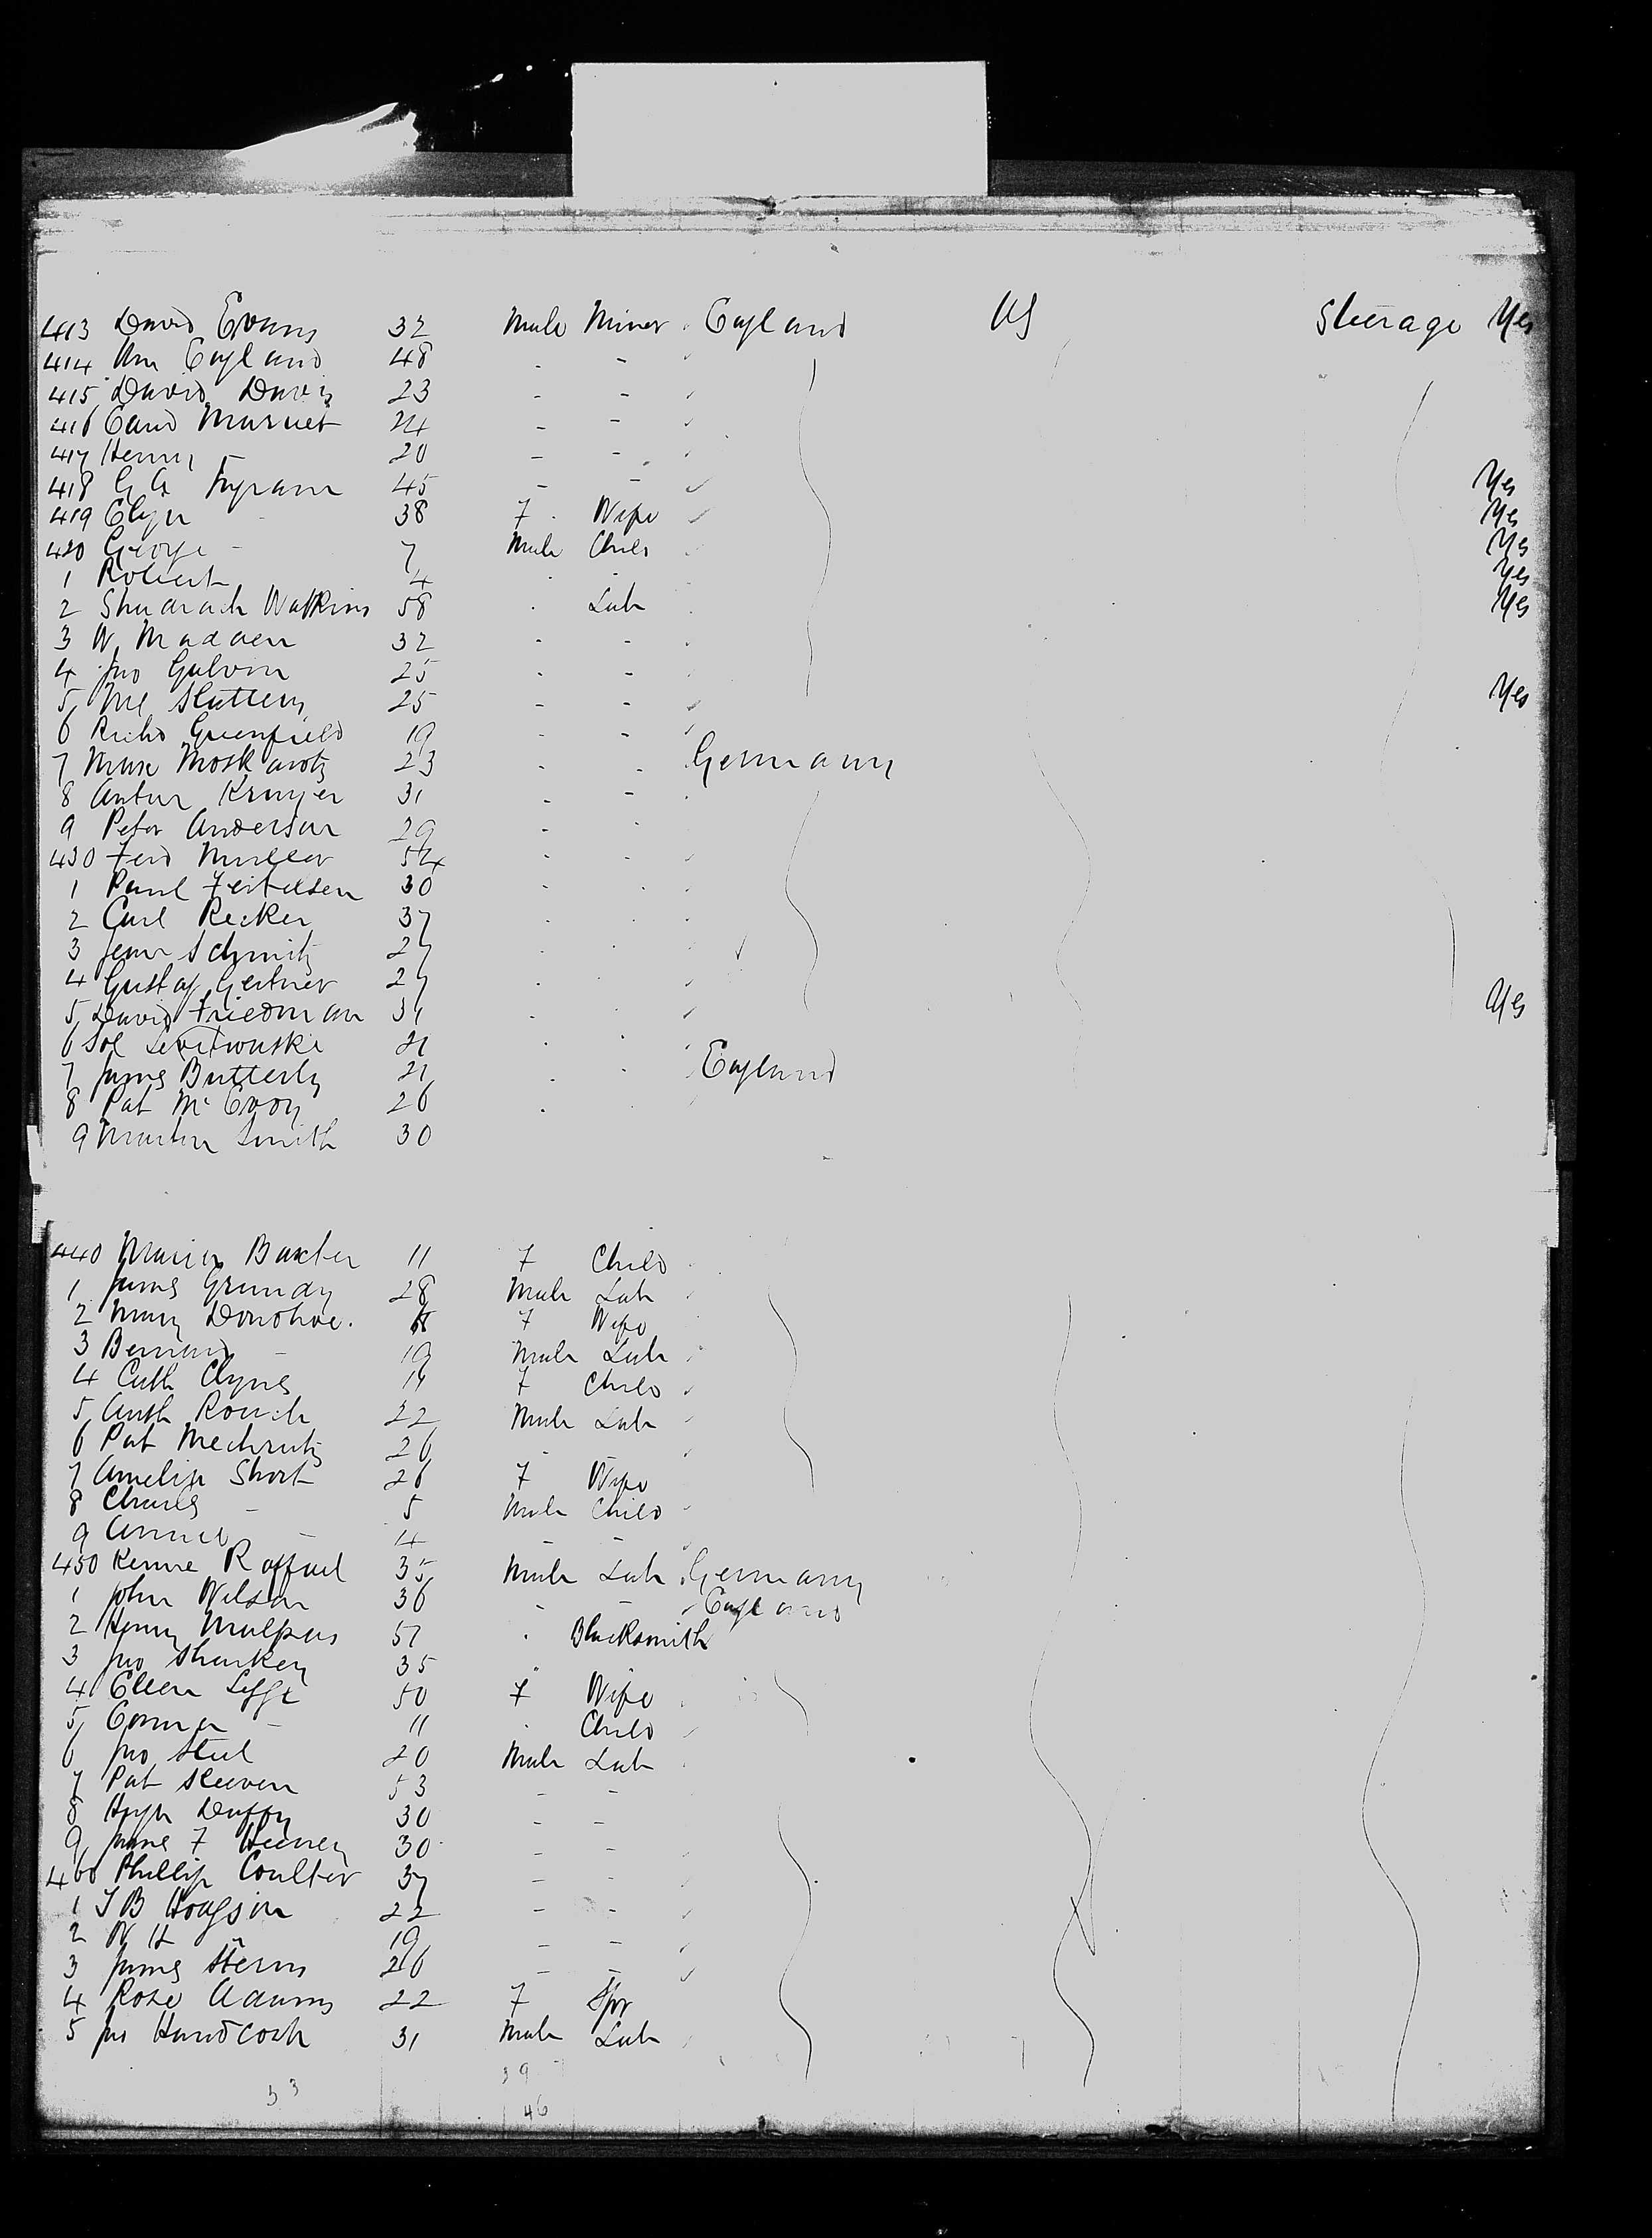 413 David Evans 32 Male Miner England US Steerage Yes
414 Wm England 48 - -
415 David Davis 23 - -
416 Marnet 24 - -
417 Henry - 20 - -
418 G A Ingram 45 - - Yes
419 Eliza - 38 F Wife Yes
420 George - 7 Male Child Yes
1 Robert 4 Yes
2 Shadrach Watkins 58 Lab Yes
3 W Madden 32 - -
4 Jno Galvin 25 - -
5 Ml Slattery 25 - - Yes
6 Richd Greenfield 19 - -
7 Max Moskowitz 23 - - Germany
8 Anton Kruger 31 - -
9 Peter Anderson 29 - -
430 Ferd Muller 54 - -
1 Paul Feitelsen 30
2 Carl Recker 37
3 Jean Schmitz 27
4 Gustaf Geitner 27
5 David Friedman 31 Yes
6 Sol 21
7 James Butterly 21 England
8 Pat McEvoy 26
9 Martin Smith 30
440 Maria Baxter 11 F Child
1 James Grundy 28 Male Lab
2 Mary Donohoe. F Wife
3 Bernard - 19 Male Lab
4 Cath Clynes F Child
5 Anth Roach 22 Male Lab
6 Pat 26 - -
7 Amelia Short 26 F Wife
8 Charles - 5 Male Child
9 Annie - 4 - -
450 Raffael 35 Male Lab Germany
1 John Wilson 36 - - England
2 Henry Malpas 51 Blacksmith
3 Jno Sharkey 35 "
4 Ellen 50 F Wife
5 Emma - 11 Child
6 Jno Steel 20 Male Lab
7 Pat Sleeven 53 - -
8 Hugh Duffy 30 - -
9 James F Heeney 30 - -
460 Phillip Coulter 37 - -
1 J B Hodgson 22 - -
2 W H " 19 - -
3 James Stern 26 - -
4 Rose Adams 22 F Spr
5 Jas Handcock 31 Male Lab
33 39
46